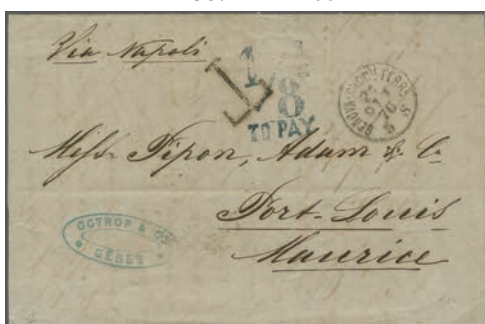 Via Napoli
1/8
TO PAY
GENOVA
76
Messrs Pipon, Adam & Co
Port-Louis
Maurice
OGTROP & CO
GÊNES